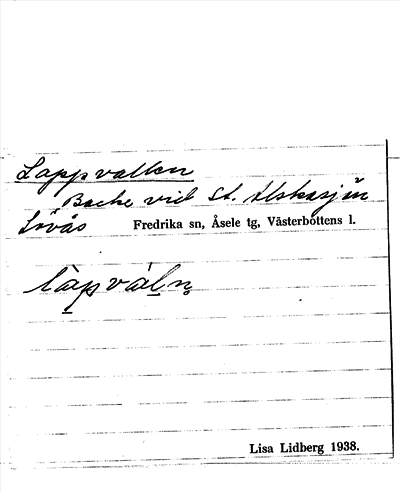 Lappvallen
Backe vid St. Alskasjön
Lövås Fredrika sn, Åsele tg, Västerbottens l.
làpváln̥
Lisa Lidberg 1938.